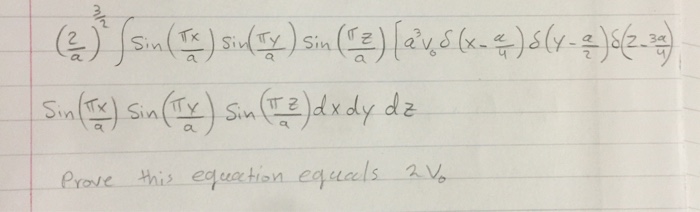 (2/a)^(3/2) ∫ sin(πx/a) sin(πy/a) sin(πz/a) [a³V₀ δ(x-a/4) δ(y-a/2) δ(z-3a/4)
Sin(πx/a) sin(πy/a) sin(πz/a) dx dy dz
Prove this equation equals 2V₀